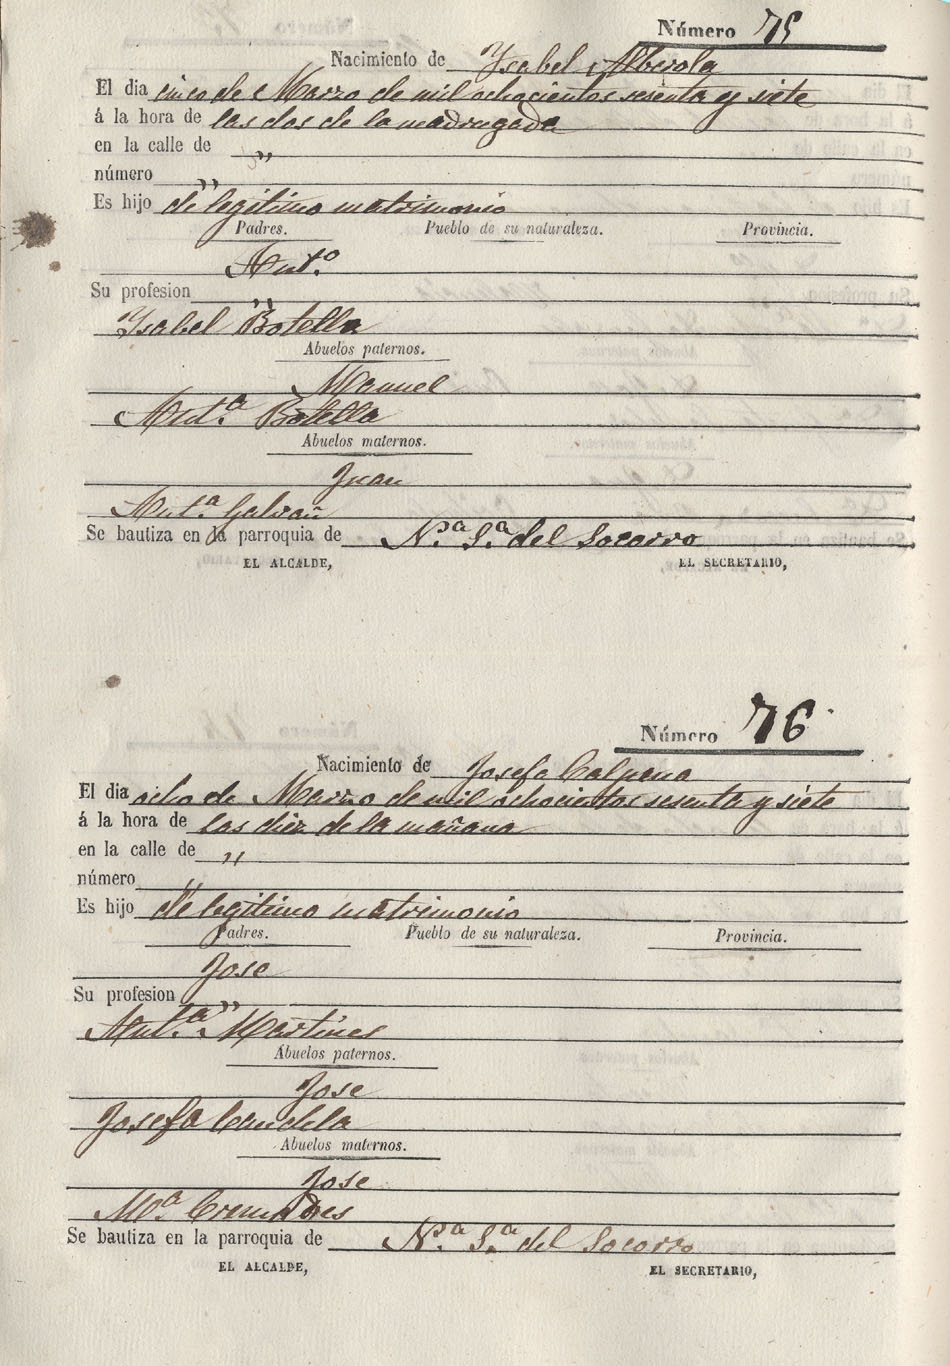 Número 75
Nacimiento de Ysabel Alberola
El dia cinco de Marzo de mil ochocientos sesenta y siete
á la hora de las dos de la madrugada
en la calle de ,,
número ,,
Es hijo de legitimo matrimonio
Padres. Pueblo de su naturaleza. Provincia.
Ant.º
Su profesion ,,
Ysabel Botella
Abuelos paternos.
Manuel
Ant.ª Botella
Abuelos maternos.
Juan
Ant.ª Galvañ
Se bautiza en la parroquia de N.ª S.ª del Socorro
EL ALCALDE, EL SECRETARIO,
Número 76
Nacimiento de Josefa Calpena
El dia ocho de Marzo de mil ochocientos sesenta y siete
á la hora de las diez de la mañana
en la calle de ,,
número ,,
Es hijo de legitimo matrimonio
Padres. Pueblo de su naturaleza. Provincia.
Jose
Su profesion ,,
Ant.ª Martines
Abuelos paternos.
Jose
Josefa Candela
Abuelos maternos.
Jose
M.ª Cremades
Se bautiza en la parroquia de N.ª S.ª del Socorro
EL ALCALDE, EL SECRETARIO,